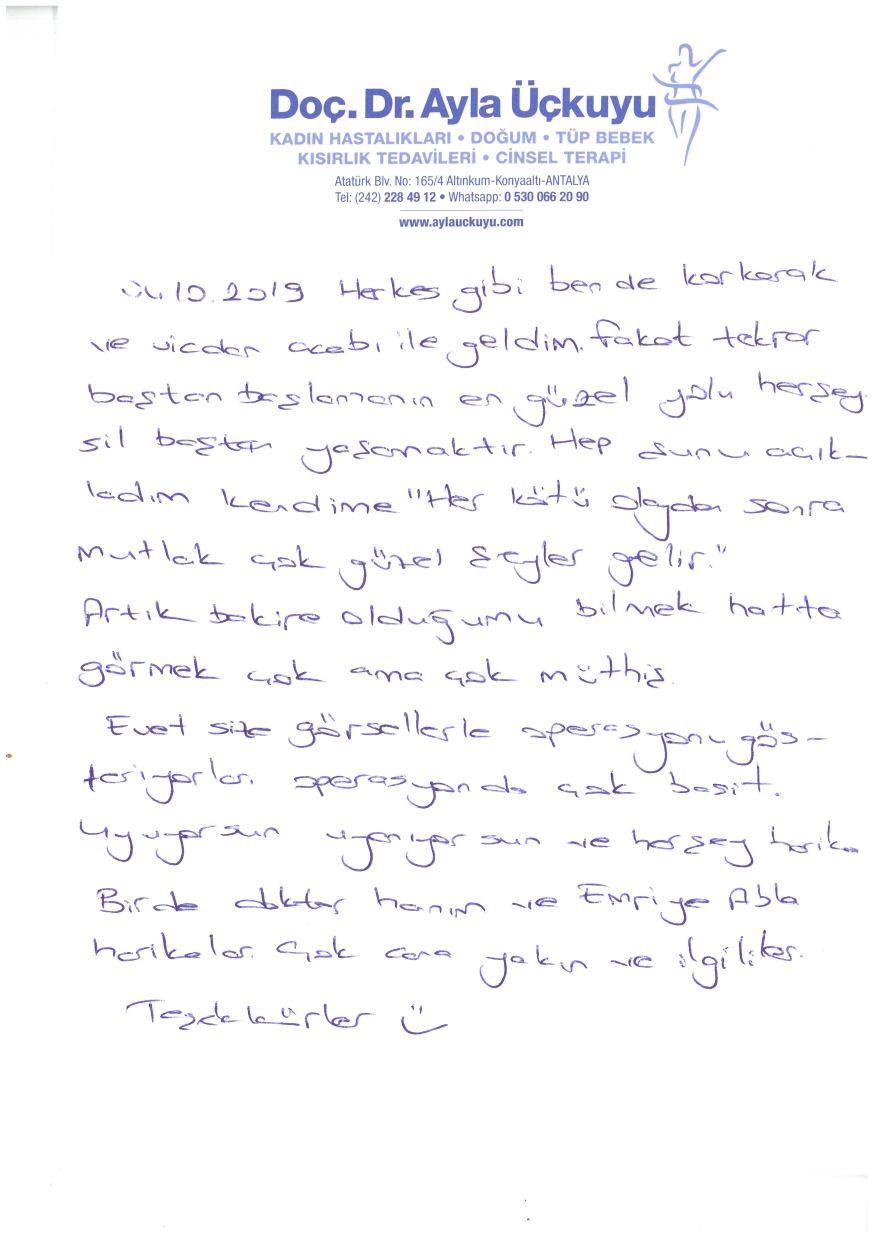 Doç. Dr. Ayla Üçkuyu
KADIN HASTALIKLARI • DOĞUM • TÜP BEBEK
KISIRLIK TEDAVİLERİ • CİNSEL TERAPİ
Atatürk Blv. No: 165/4 Altınkum-Konyaaltı-ANTALYA
Tel: (242) 228 49 12 • Whatsapp: 0 530 066 20 90
www.aylauckuyu.com
04.10.2019 Herkes gibi ben de korkarak
ve vicdan azabı ile geldim. Fakat tekrar
baştan başlamanın en güzel yolu herşey
sil baştan yaşamaktır. Hep şunu açık-
ladım kendime "Her kötü olaydan sonra
mutlak çok güzel şeyler gelir."
Artık bakire olduğumu bilmek hatta
görmek çok ama çok müthiş.
Evet size görsellerle operasyonu gös-
teriyorlar. operasyonda çok basit.
Uyuyorsun uyanıyorsun ve herşey harika
Birde doktor hanım ve Emriye Abla
harikalar. Çok cana yakın ve ilgililer.
Teşekkürler